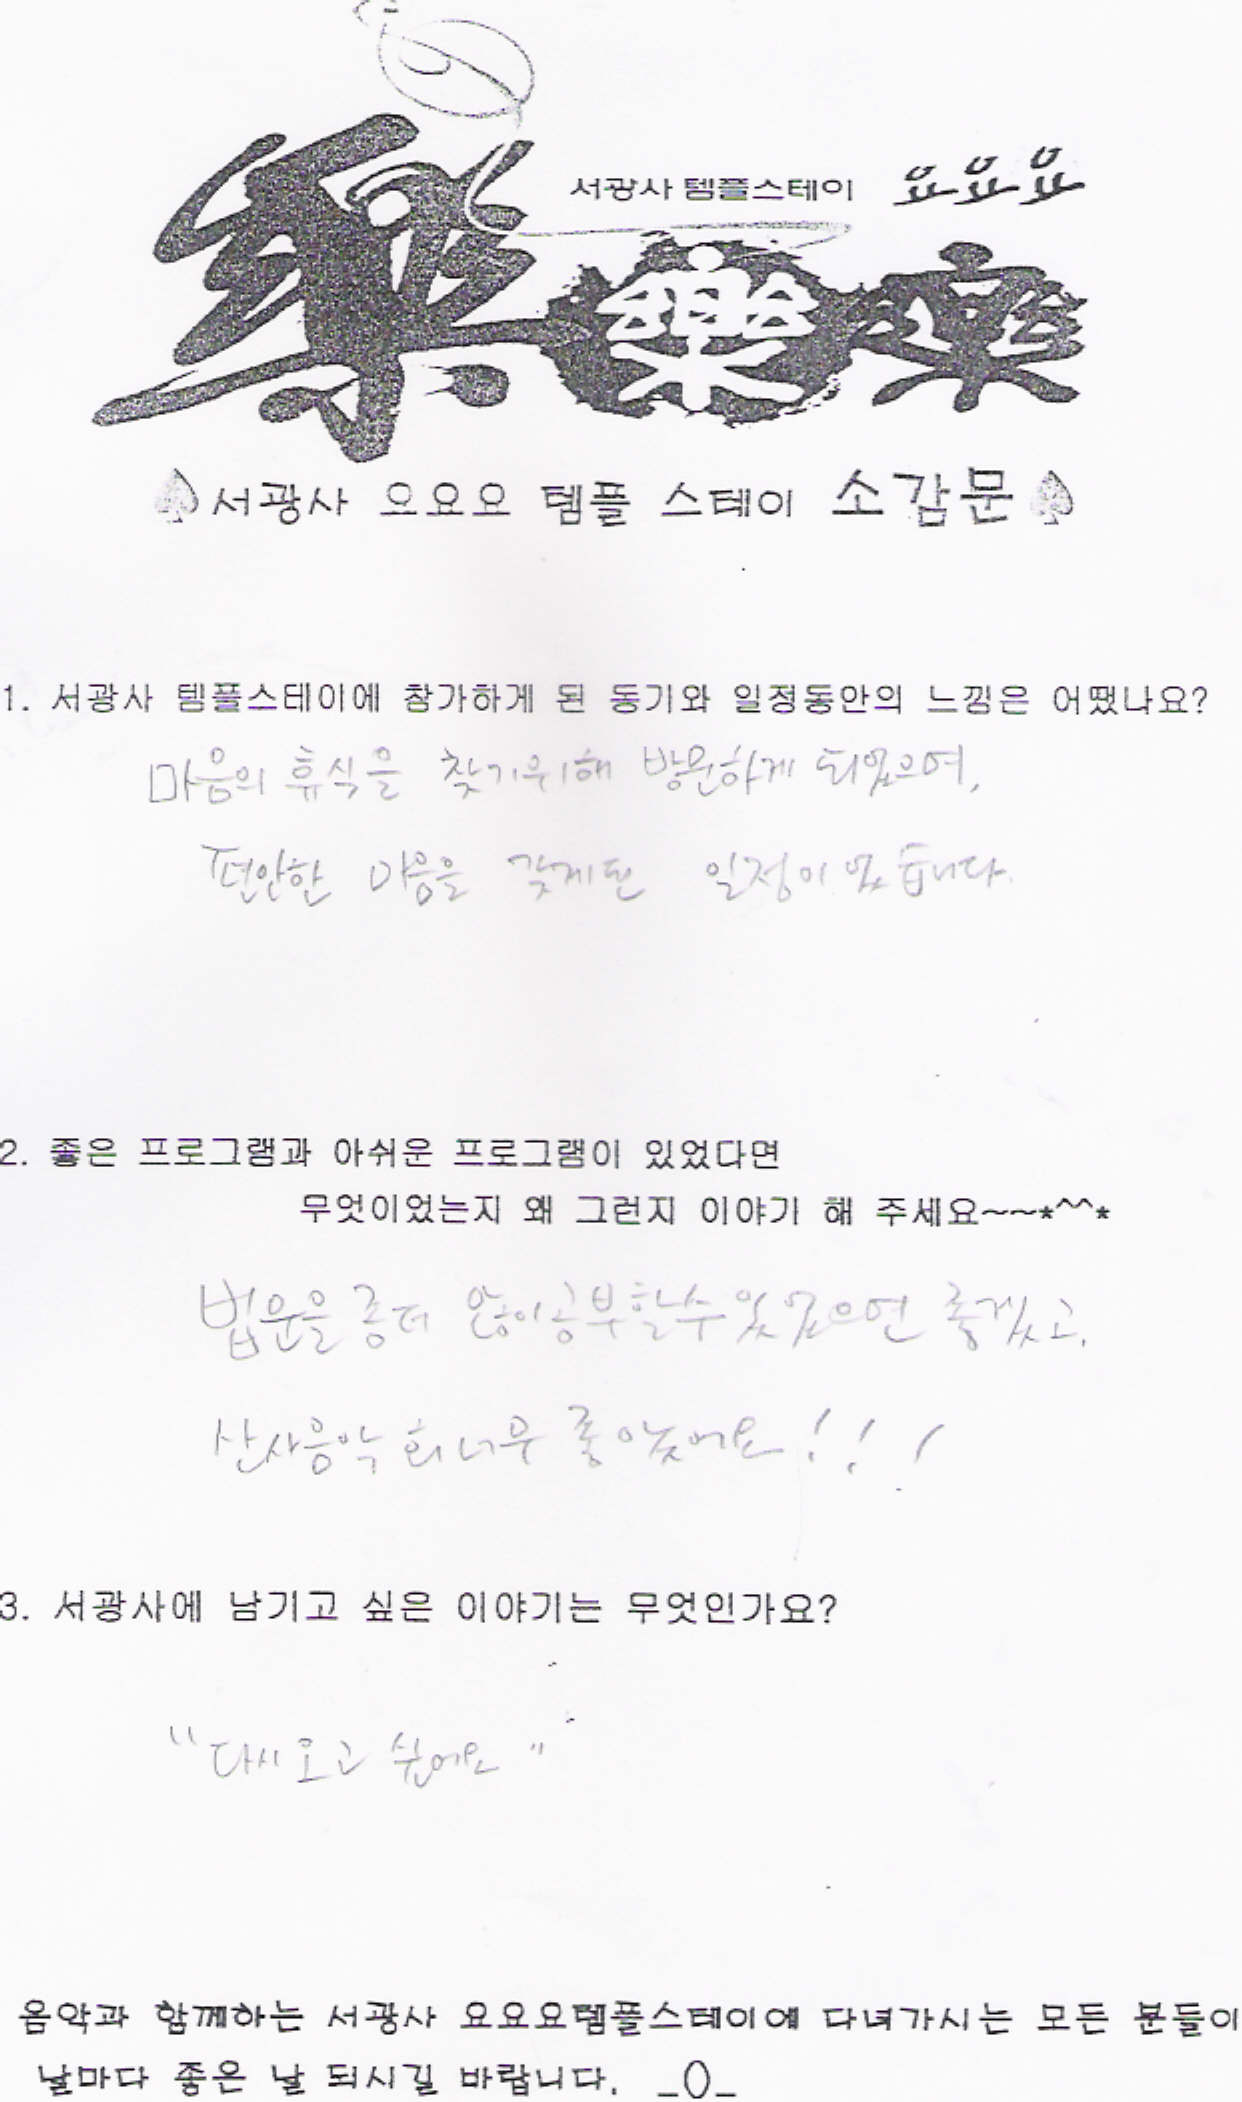 서광사 템플스테이 요요요
樂樂樂
서광사 요요요 템플 스테이 소감문
1. 서광사 템플스테이에 참가하게 된 동기와 일정동안의 느낌은 어땠나요?
마음의 휴식을 찾기위해 방문하게 되었으며,
편안한 마음을 갖게된 일정이었습니다.
2. 좋은 프로그램과 아쉬운 프로그램이 있었다면
무엇이었는지 왜 그런지 이야기 해 주세요~~*^^*
법문을 좀더 많이공부할수있었으면 좋겠고,
산사음악회너무 좋았어요!!!
3. 서광사에 남기고 싶은 이야기는 무엇인가요?
"다시오고 싶어요"
음악과 함께하는 서광사 요요요템플스테이에 다녀가시는 모든 분들이
날마다 좋은 날 되시길 바랍니다. _()_